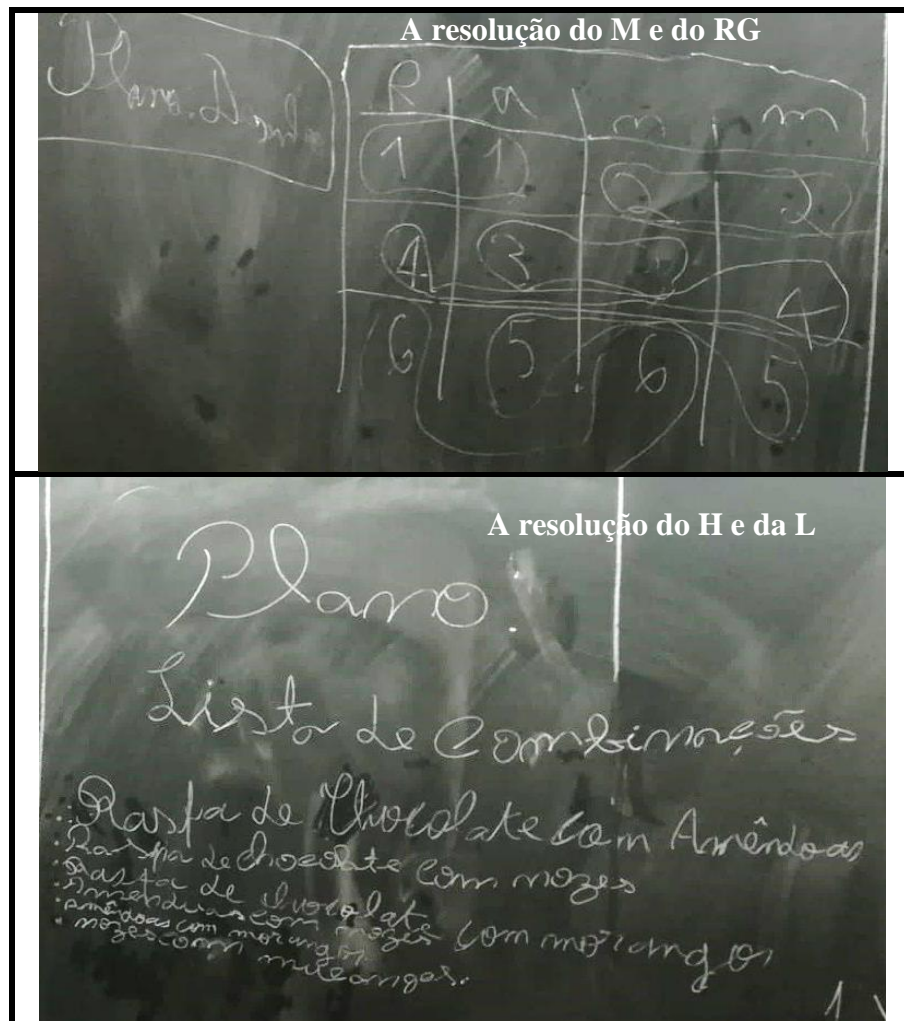 A resolução do M e do RG
Plano.
R a n m
1 1 2 2
4 3 3 4
6 5 6 5
A resolução do H e da L
Plano.
Lista de Combinações
Raspa de Chocolate com Amêndoas
Raspa de chocolate com nozes
Raspa de chocolat com morangos
Amendoas com nozes
amêdoas com morangos
nozes com